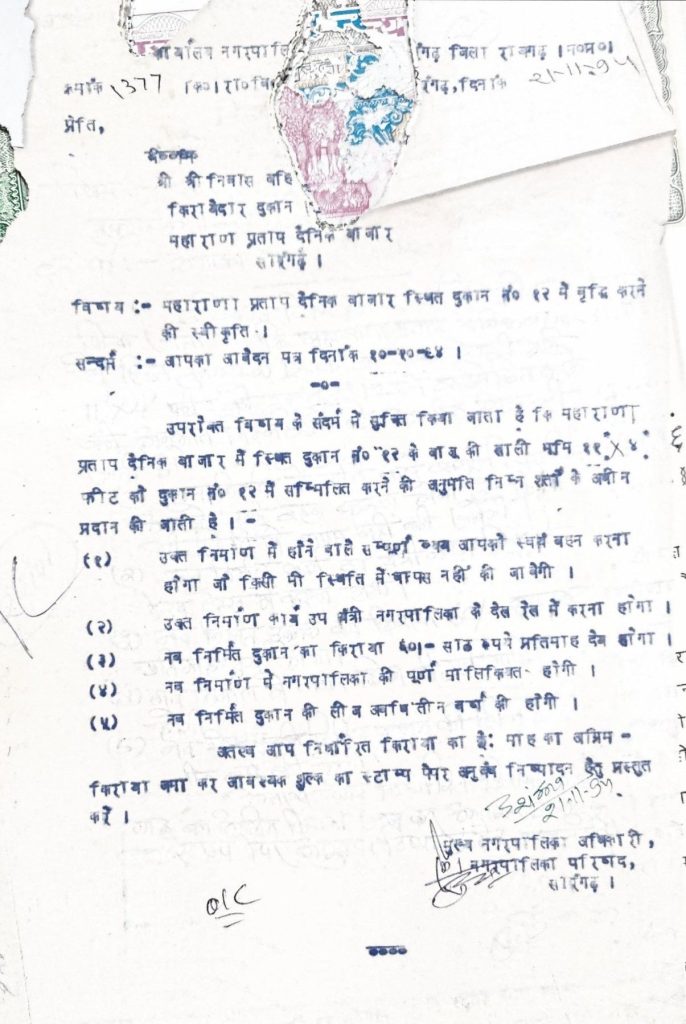 कार्यालय नगरपालि ंगढ़ जिला रायगढ़ ।म०प्र०।
क्रमांक 1377 ।क०।रा०वि रंगढ़,दिनांक 21-11-94
प्रति,
श्री श्री निवास बहि
किरायेदार दुकान
महाराण प्रताप दैनिक बाजार
सारंगढ़ ।
विषय :- महाराणा प्रताप दैनिक बाजार स्थित दुकान नं० १२ में वृद्धि करने
की स्वीकृति ।
सन्दर्भ :- आपका आवेदन पत्र दिनांक १०-१०-९४ ।
-०-
उपरोक्त विषय के संदर्भ में सुचित किया जाता है कि महाराणा
प्रताप दैनिक बाजार में स्थित दुकान नं० १२ के बाजू की खाली भूमि ११ X ४
फीट को दुकान नं० १२ में सम्मिलित करने की अनुमति निम्न शर्तो के अधीन
प्रदान की जाती है । -
(१) उक्त निर्माण में होने वाले सम्पूर्ण व्यय आपको स्वयं वहन करना
होगा जो किसी भी स्थिति में वापस नहीं की जावेगी ।
(२) उक्त निर्माण कार्य उप यंत्री नगरपालिका के देख रेख में करना होगा ।
(३) नव निर्मित दुकान का किराया ६०।- साठ रूपये प्रतिमाह देय होगा ।
(४) नव निर्माण में नगरपालिका की पूर्ण मालिकियत होगी ।
(५) नव निर्मित दुकान की लीज अवधि तीन वर्षा की होगी ।
अतएव आप निर्धारित किराया का छै: माह का अग्रिम -
किराया जमा कर आवश्यक शुल्क का स्टाम्प पेपर अनुबंध निष्पादन हेतु प्रस्तुत
करें ।
मुख्य नगरपालिका अधिकारी,
नगरपालिका परिषद,
सारंगढ़ ।
O/C